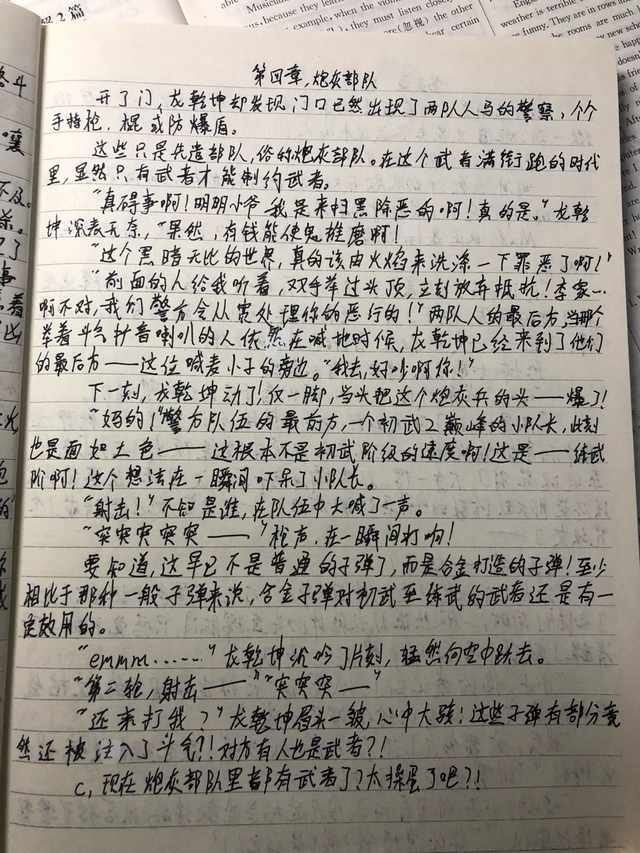 Musician
weather is terrible
us, because they learn
they must listen closely
funny. They are in rows and
example, when the violin
(忽视) the other
the rooms are much
第四章,炮灰部队
开了门,龙乾坤却发现门口已然出现了两队人马的警察,个个
手持枪、棍或防爆盾。
这些只是先遣部队,俗称炮灰部队。在这个武者满街跑的时代
里,显然只有武者才能制约武者。
"真碍事啊!明明小爷我是来扫黑除恶的啊!真的是。"龙乾
坤深表无奈,"果然,有钱能使鬼推磨啊!
"这个黑暗无比的世界,真的该由火焰来洗涤一下罪恶了啊!"
"前面的人给我听着,双手举过头顶,立刻放弃抵抗!李家…
啊不对,我们警方会从宽处理你的恶行的!"两队人的最后方,当那个
举着扩音喇叭的人依然在喊地时候,龙乾坤已经来到了他们
的最后方——这位喊麦小子的旁边。"我去,好吵啊你!"
下一刻,龙乾坤动了!仅一脚,当头把这个炮灰兵的头——爆了!
"妈的!"警方队伍的最前方,一个初武2巅峰的小队长,此刻
也是面如土色——这根本不是初武阶级的速度啊!这是——练武
阶啊!这个想法在一瞬间吓呆了小队长。
"射击!"不知是谁,在队伍中大喊了一声。
"突突突突突——"枪声,在一瞬间打响!
要知道,这早已不是普通的子弹了,而是合金打造的子弹!至少
相比于那种一般子弹来说,合金子弹对初武至练武的武者还是有一
定效用的。
"emmm……"龙乾坤沉吟了片刻,猛然向空中跃去。
"第二轮,射击——""突突突——"
"还来打我?"龙乾坤眉头一皱,心中大骇!这些子弹有部分竟
然还被注入了斗气?!对方有人也是武者?!
C,现在炮灰部队里都有武者了?太操蛋了吧?!